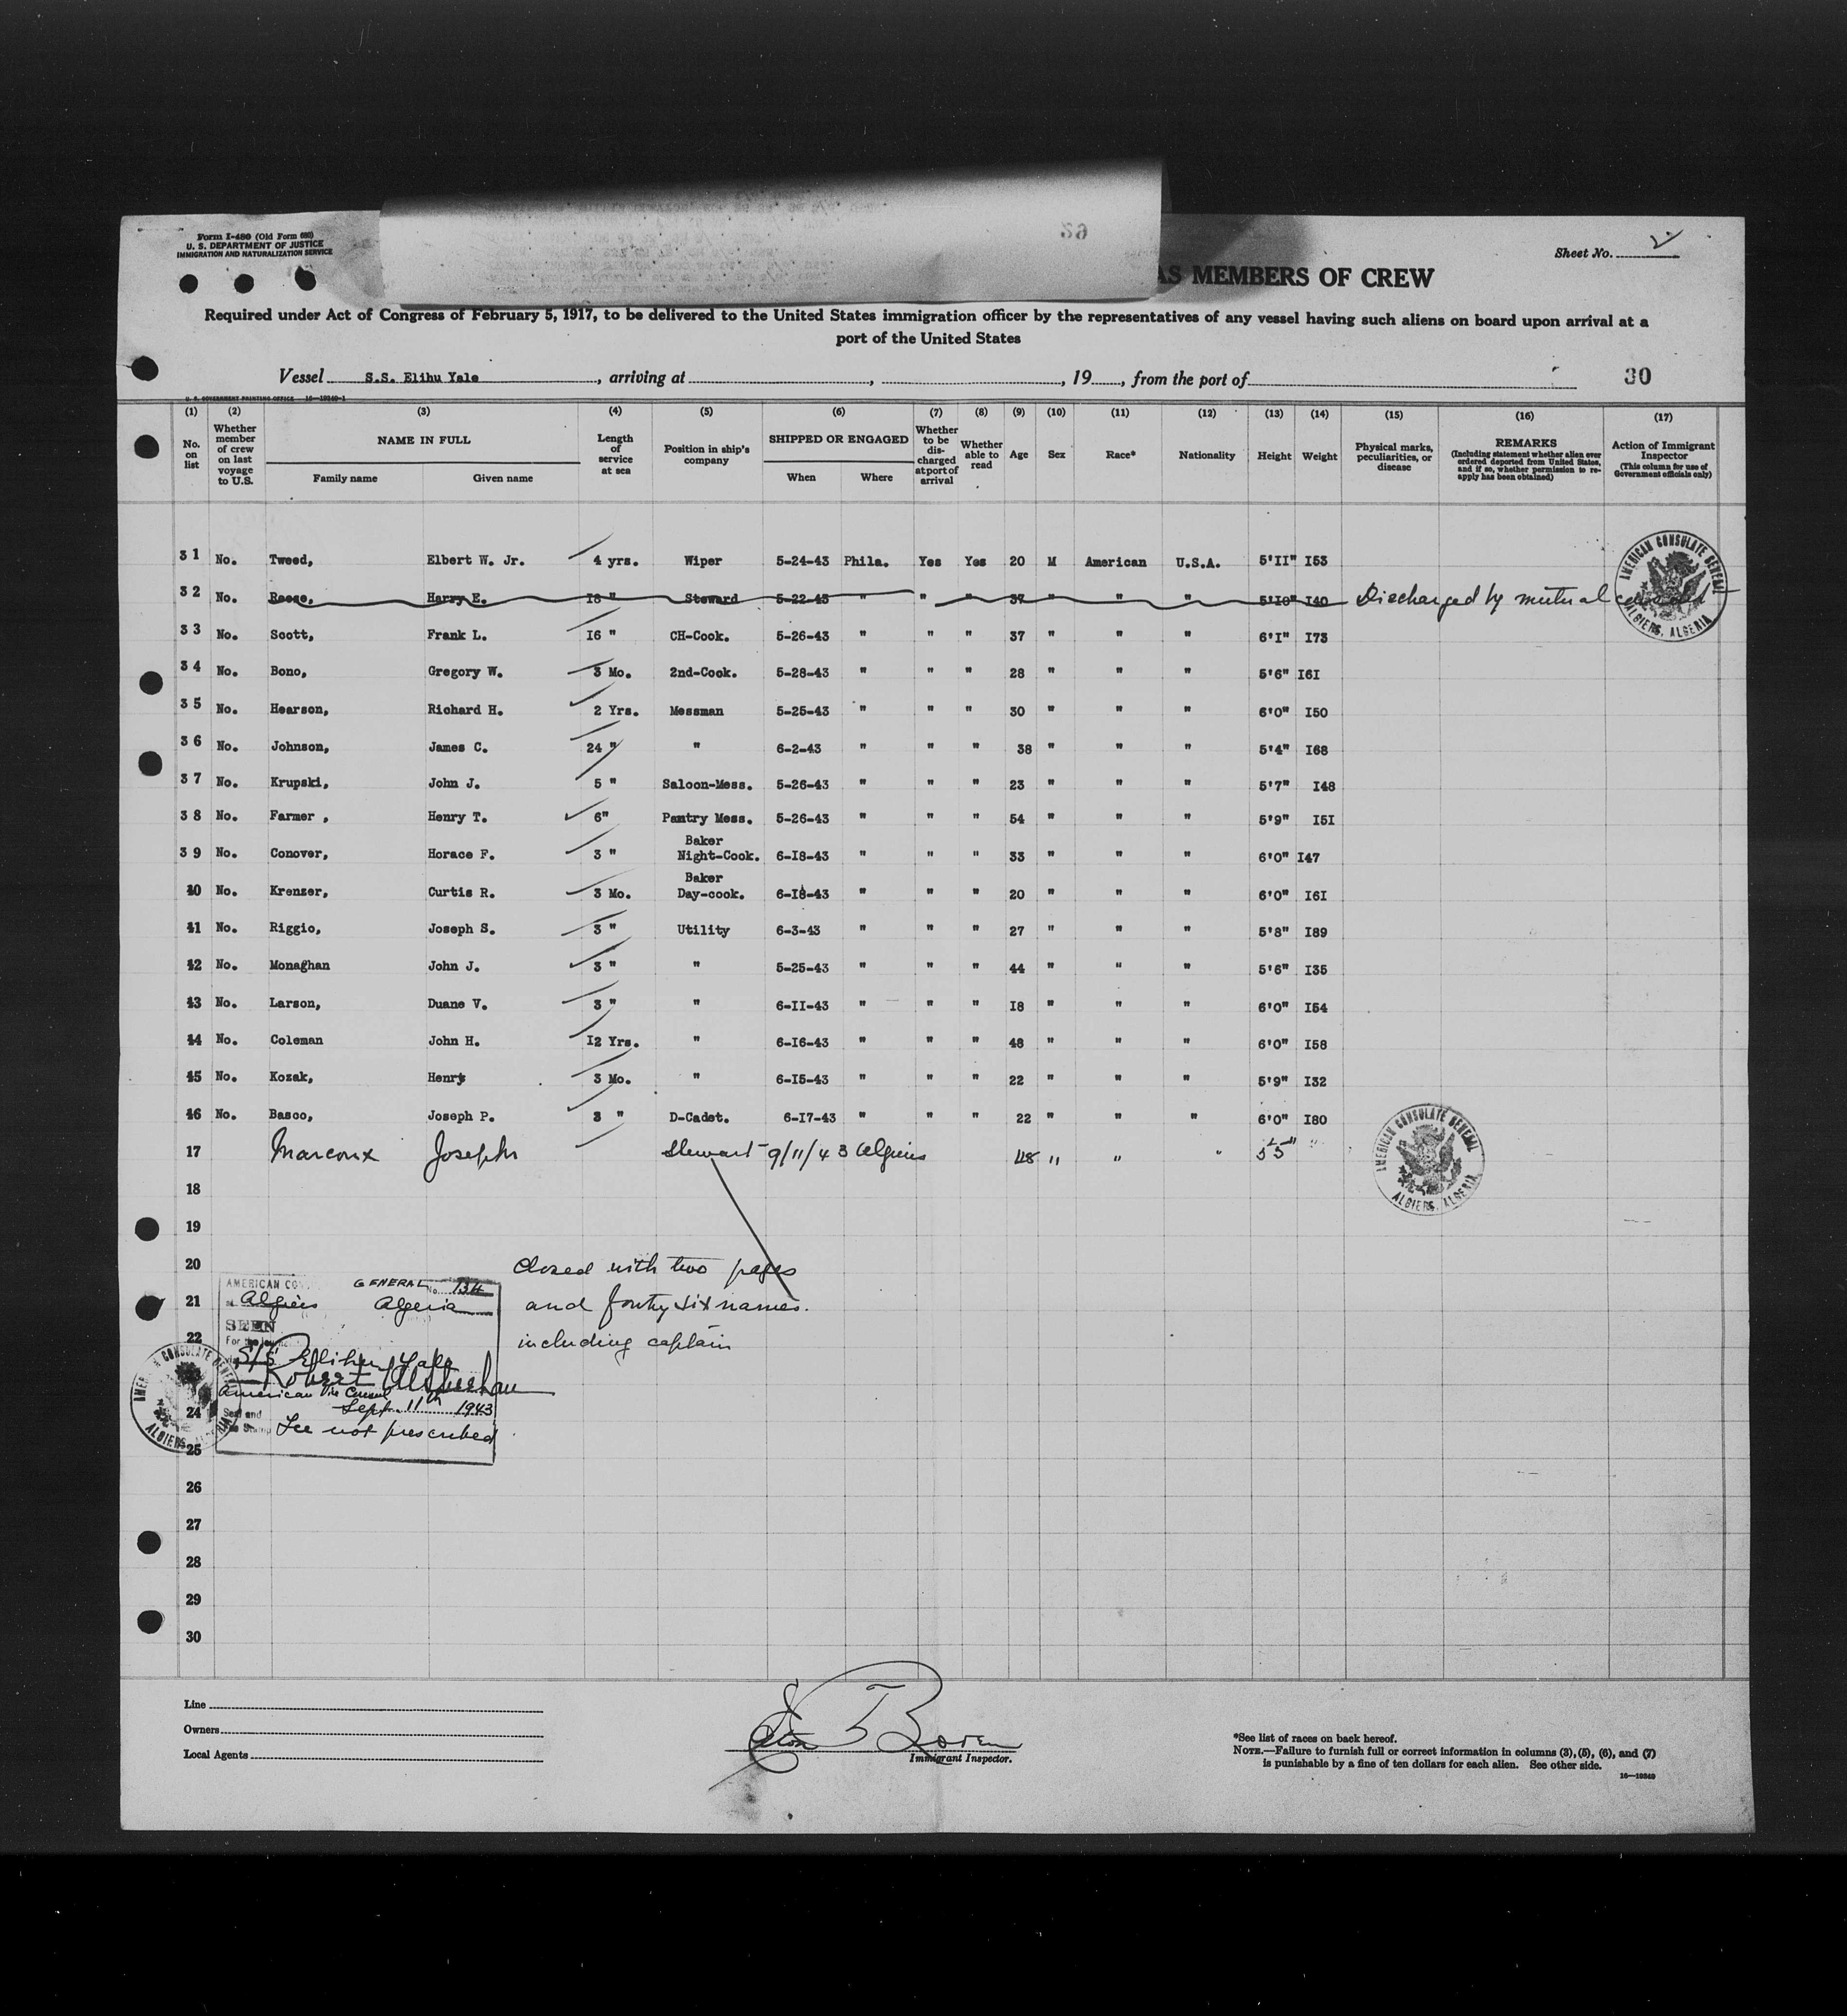 39
Form I-480 (Old Form 680)
U. S. DEPARTMENT OF JUSTICE
IMMIGRATION AND NATURALIZATION SERVICE
Sheet No. V
AS MEMBERS OF CREW
Required under Act of Congress of February 5, 1917, to be delivered to the United States immigration officer by the representatives of any vessel having such aliens on board upon arrival at a
port of the United States
Vessel S.S. Elihu Yale, arriving at , , 19 , from the port of 30
U. S. GOVERNMENT PRINTING OFFICE 16—19240-1
(1) (2) (3) (4) (5) (6) (7) (8) (9) (10) (11) (12) (13) (14) (15) (16) (17)
No. on list
Whether member of crew on last voyage to U.S.
NAME IN FULL
Family name Given name
Length of service at sea
Position in ship's company
SHIPPED OR ENGAGED
When Where
Whether to be discharged at port of arrival
Whether able to read
Age Sex Race* Nationality Height Weight
Physical marks, peculiarities, or disease
REMARKS
(Including statement whether alien ever ordered deported from United States, and if so, whether permission to re-apply has been obtained)
Action of Immigrant Inspector
(This column for use of Government officials only)
31 No. Tweed, Elbert W. Jr. 4 yrs. Wiper 5-24-43 Phila. Yes Yes 20 M American U.S.A. 5'II" I53
32 No. Reese, Harry E. I8 " Steward 5-22-43 " " " 37 " " " 5'I0" I40 Discharged by mutual consent
33 No. Scott, Frank L. I6 " CH-Cook. 5-26-43 " " " 37 " " " 6'I" I73
34 No. Bono, Gregory W. 3 Mo. 2nd-Cook. 5-28-43 " " " 28 " " " 5'6" I6I
35 No. Hearson, Richard H. 2 Yrs. Messman 5-25-43 " " " 30 " " " 6'0" I50
36 No. Johnson, James C. 24 " " 6-2-43 " " " 38 " " " 5'4" I68
37 No. Krupski, John J. 5 " Saloon-Mess. 5-26-43 " " " 23 " " " 5'7" I48
38 No. Farmer , Henry T. 6" Pantry Mess. 5-26-43 " " " 54 " " " 5'9" I5I
39 No. Conover, Horace F. 3 " Baker Night-Cook. 6-I8-43 " " " 33 " " " 6'0" I47
40 No. Krenzer, Curtis R. 3 Mo. Baker Day-cook. 6-I8-43 " " " 20 " " " 6'0" I6I
41 No. Riggio, Joseph S. 3 " Utility 6-3-43 " " " 27 " " " 5'8" I89
42 No. Monaghan John J. 3 " " 5-25-43 " " " 44 " " " 5'6" I35
43 No. Larson, Duane V. 3 " " 6-II-43 " " " I8 " " " 6'0" I54
44 No. Coleman John H. I2 Yrs. " 6-I6-43 " " " 48 " " " 6'0" I58
45 No. Kozak, Henry 3 Mo. " 6-I5-43 " " " 22 " " " 5'9" I32
46 No. Basco, Joseph P. 3 " D-Cadet. 6-I7-43 " " " 22 " " " 6'0" I80
17 Marcoux Joseph Stewart 9/11/43 Algiers 48 " " " 5'5" "
18
19
20 Closed with two pages
21 and fourty six names.
22 including captain
AMERICAN CONSULATE GENERAL
ALGIERS, ALGERIA
AMERICAN CONSULATE GENERAL
ALGIERS, ALGERIA
AMERICAN CO GENERAL No. 134
Algiers Algeria
SEEN
For the
S/S Ellihu Yale
Robert
American Vice Consul
Sept. 11th 1943
Seal and
Fee Stamp Fee not prescribed
AMERICAN CONSULATE GENERAL
ALGIERS, ALGERIA
24
25
26
27
28
29
30
Line
Owners
Local Agents
Immigrant Inspector.
*See list of races on back hereof.
NOTE.—Failure to furnish full or correct information in columns (3), (5), (6), and (7)
is punishable by a fine of ten dollars for each alien. See other side.
16—19240